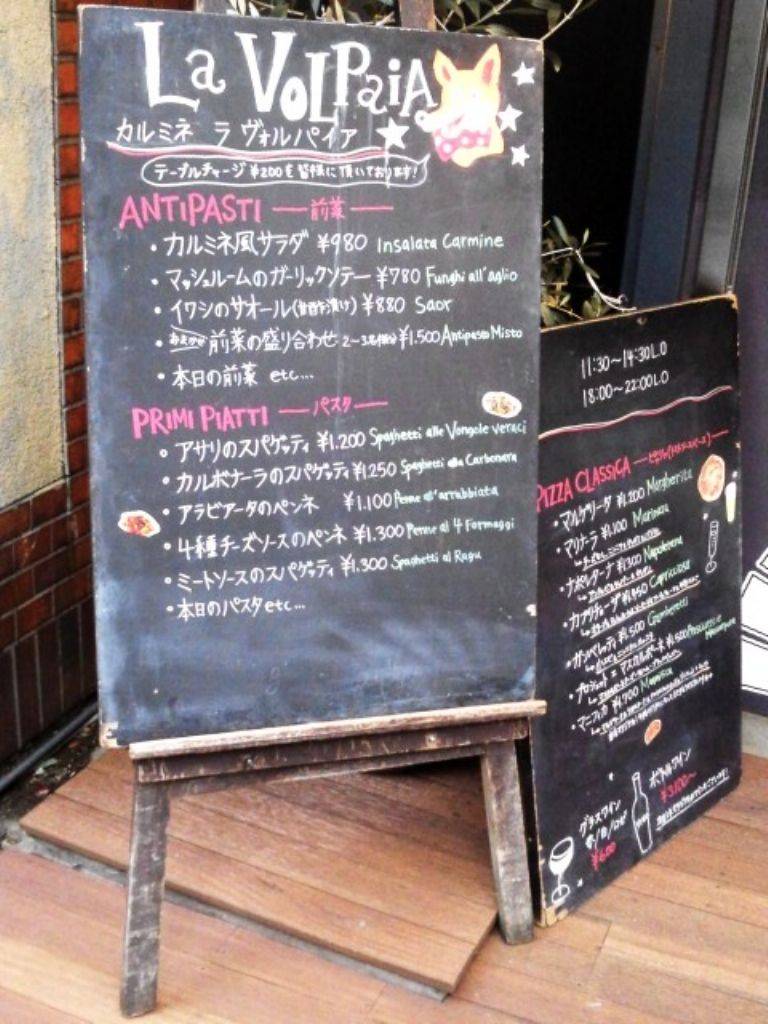 La VOLPaiA
カルミネ ラ ヴォルパイア
テーブルチャージ ¥200を皆様に頂いております!
ANTIPASTI — 前菜 —
・カルミネ風サラダ ¥980 Insalata Carmine
・マッシュルームのガーリックソテー ¥780 Funghi all'aglio
・イワシのサオール(甘酢予漬け) ¥880 Saor
・前菜の盛り合わせ 2~3名様分 ¥1.500 Antipasto Misto
・本日の前菜 etc...
PRIMI PIATTI — パスタ —
・アサリのスパゲッティ ¥1.200 Spaghetti alle Vongole veraci
・カルボナーラのスパゲッティ ¥1250 Spaghetti alla Carbonara
・アラビアータのペンネ ¥1.100 Penne all'arrabbiata
・4種チーズソースのペンネ ¥1.300 Penne al 4 Formaggi
・ミートソースのスパゲッティ ¥1.300 Spaghetti al Ragu
・本日のパスタ etc...
11:30~14:30L.O
18:00~22:00L.O
PIZZA CLASSICA
・マルゲリータ ¥1.200 Margherita
・マリナーラ ¥1.100 Marinara
・ナポレターナ ¥1300 Napoletana
・カプリチョーザ ¥1.450 Capricciosa
・ガンベレッティ ¥1.500 Gamberetti
・プロシュット エ マスカルポーネ ¥1.500
・マニフィカ ¥1.700 Magnifica
グラスワイン
赤/白/ロゼ
¥600
ボトルワイン
¥3.100~